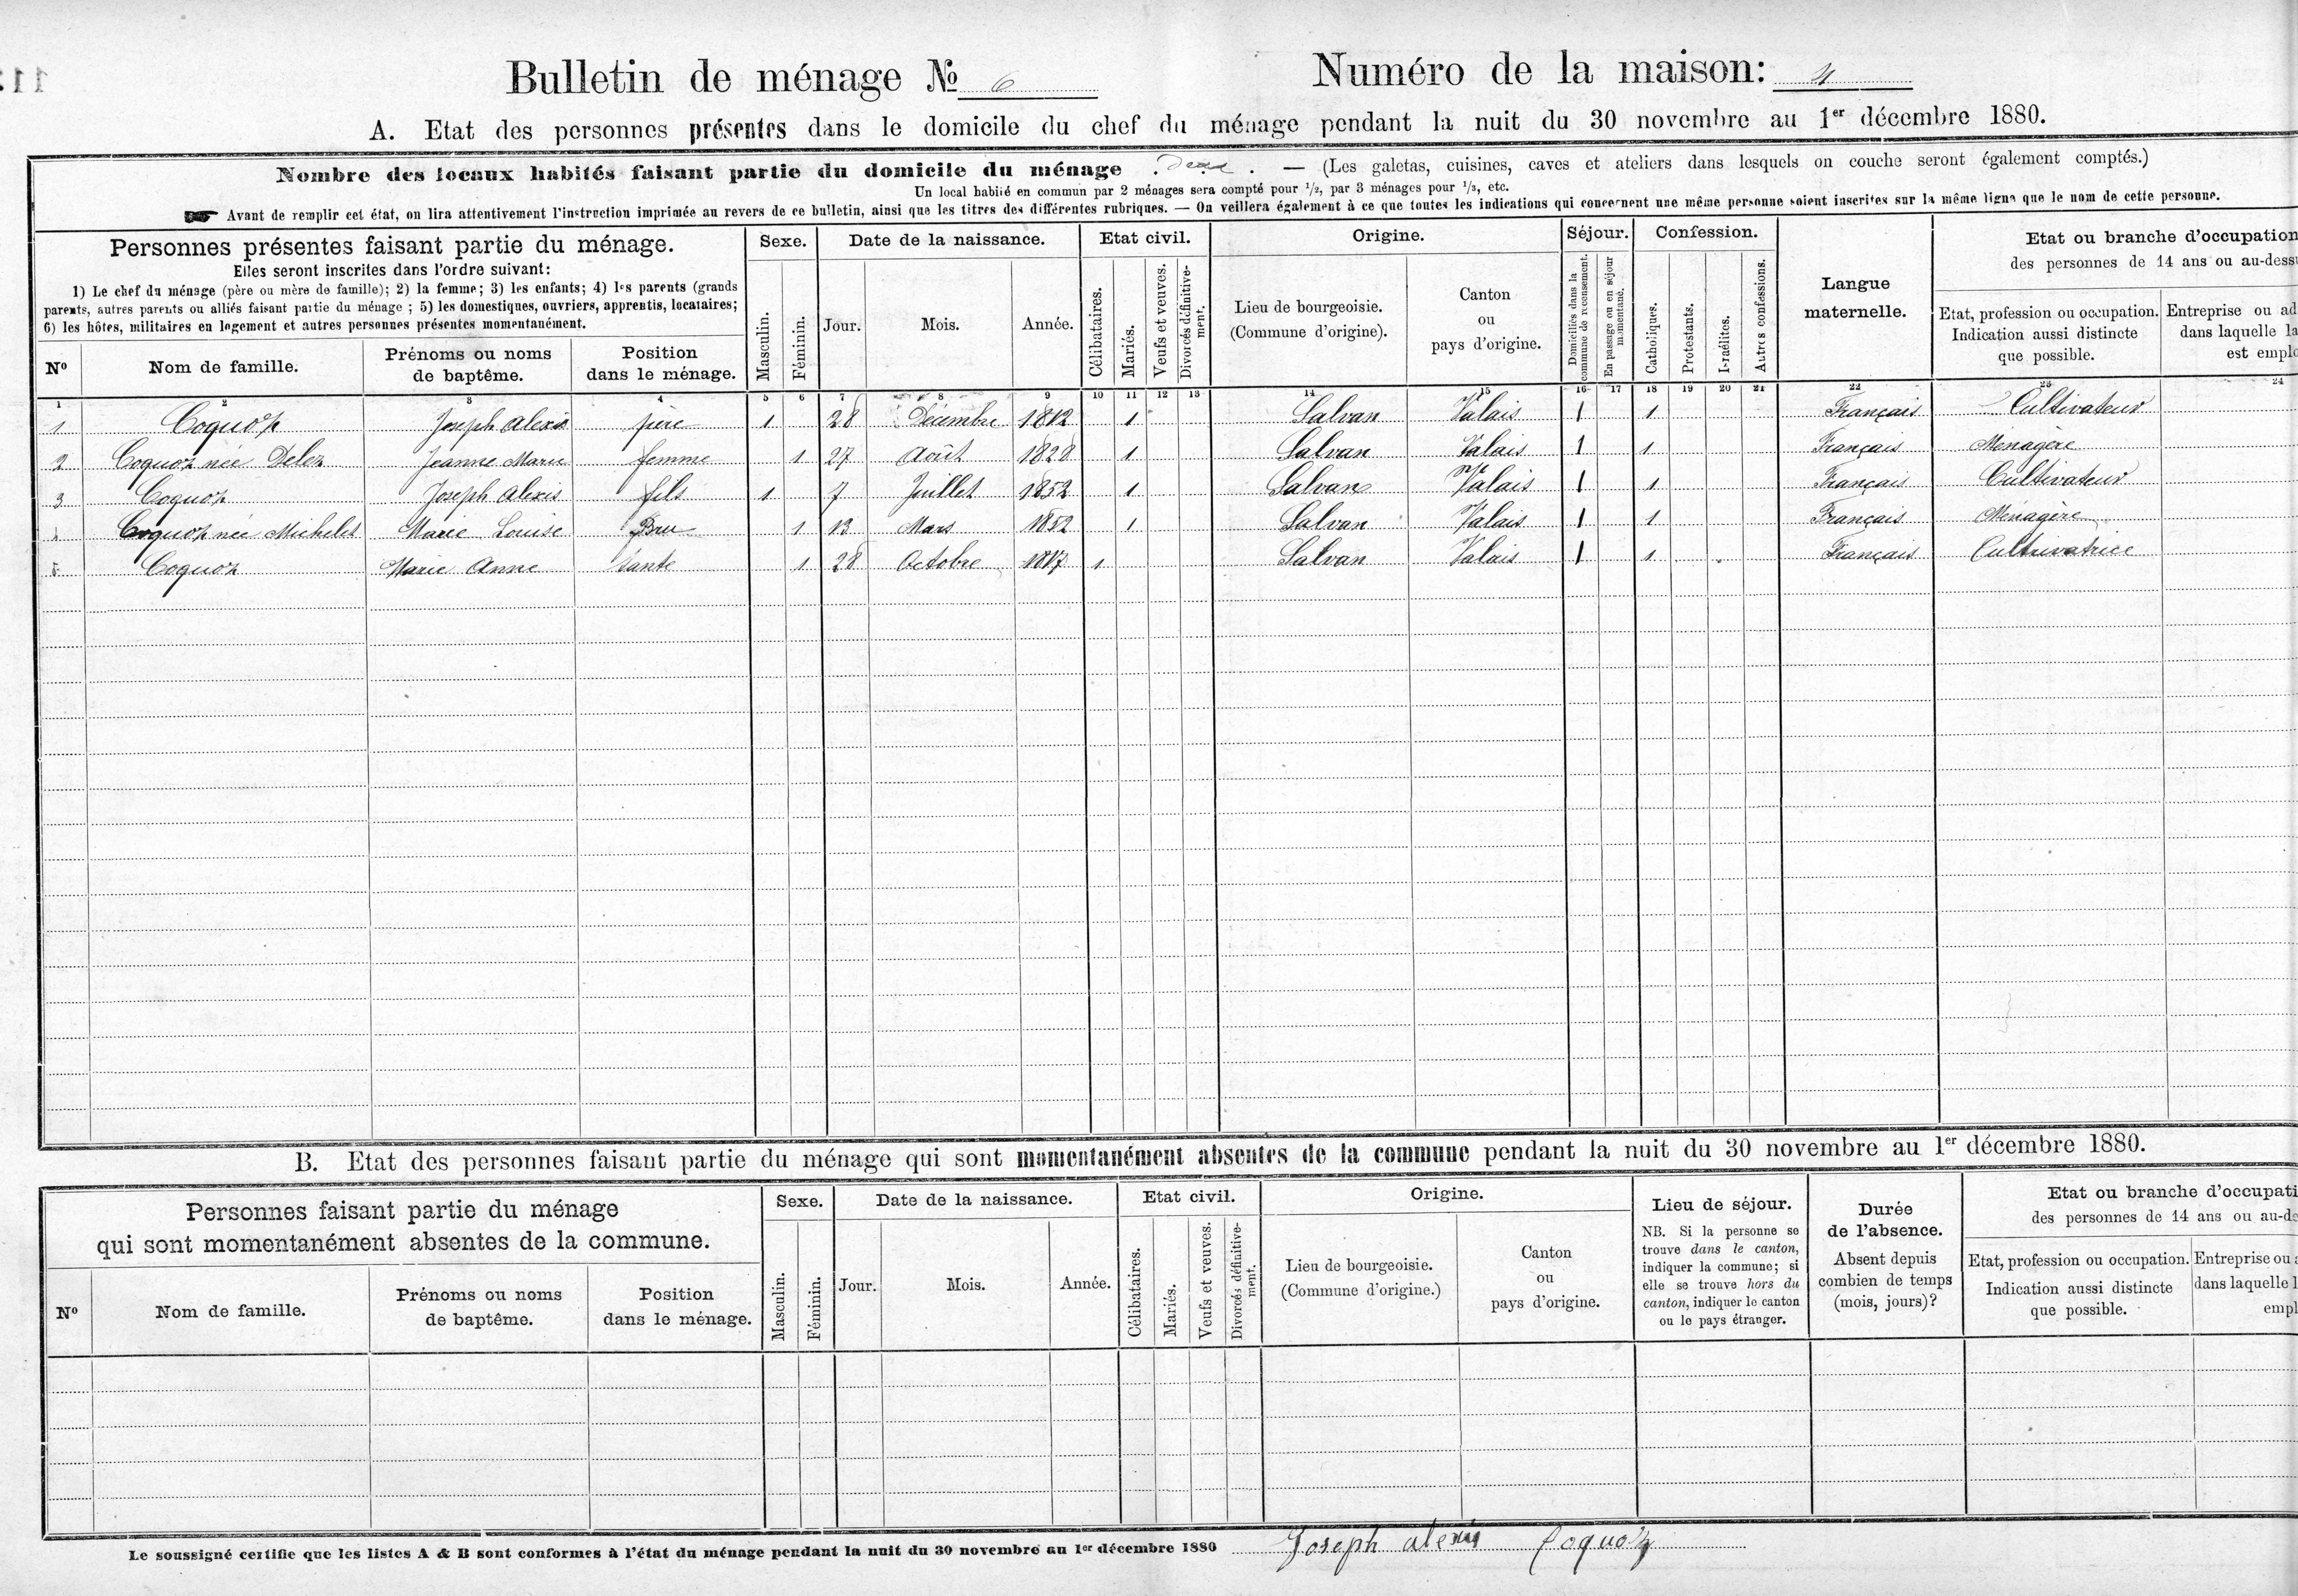 Bulletin de ménage № 6 Numéro de la maison: 4
A. Etat des personnes présentes dans le domicile du chef du ménage pendant la nuit du 30 novembre au 1er décembre 1880.
Nombre des locaux habités faisant partie du domicile du ménage . Deux . — (Les galetas, cuisines, caves et ateliers dans lesquels on couche seront également comptés.)
Un local habité en commun par 2 ménages sera compté pour 1/2, par 3 ménages pour 1/3, etc.
☛ Avant de remplir cet état, on lira attentivement l'instruction imprimée au revers de ce bulletin, ainsi que les titres des différentes rubriques. — On veillera également à ce que toutes les indications qui concernent une même personne soient inscrites sur la même ligne que le nom de cette personne.
Personnes présentes faisant partie du ménage.
Elles seront inscrites dans l'ordre suivant:
1) Le chef du ménage (père ou mère de famille); 2) la femme; 3) les enfants; 4) les parents (grands
parents, autres parents ou alliés faisant partie du ménage ; 5) les domestiques, ouvriers, apprentis, locataires;
6) les hôtes, militaires en logement et autres personnes présentes momentanément.
Nº
Nom de famille.
Prénoms ou noms
de baptême.
Position
dans le ménage.
Sexe.
Masculin.
Féminin.
Date de la naissance.
Jour.
Mois.
Année.
Etat civil.
Célibataires.
Mariés.
Veufs et veuves.
Divorcés définitive-
ment.
Origine.
Lieu de bourgeoisie.
(Commune d'origine).
Canton
ou
pays d'origine.
Séjour.
Domiciliés dans la
commune de recensement.
En passage ou en séjour
momentané.
Confession.
Catholiques.
Protestants.
Israélites.
Autres confessions.
Langue
maternelle.
Etat ou branche d'occupation
des personnes de 14 ans ou au-dess
Etat, profession ou occupation.
Indication aussi distincte
que possible.
Entreprise ou ad
dans laquelle la
est emplo
1 2 3 4 5 6 7 8 9 10 11 12 13 14 15 16 17 18 19 20 21 22 23 24
1 Coquoz Joseph Alexis père 1 28 Décembre 1812 1 Salvan Valais 1 1 Français Cultivateur
2 Coquoz née Delez Jeanne Marie femme 1 27 Août 1828 1 Salvan Valais 1 1 Français Ménagère
3 Coquoz Joseph Alexis fils 1 7 Juillet 1852 1 Salvan Valais 1 1 Français Cultivateur
Coquoz née Michelet Marie Louise Bru 1 13 Mars 1852 1 Salvan Valais 1 1 Français Ménagère
5 Coquoz Marie Anne tante 1 28 Octobre 1817 1 Salvan Valais 1 1 Français Cultrivatrice
B. Etat des personnes faisant partie du ménage qui sont momentanément absentes de la commune pendant la nuit du 30 novembre au 1er décembre 1880.
Personnes faisant partie du ménage
qui sont momentanément absentes de la commune.
Nº
Nom de famille.
Prénoms ou noms
de baptême.
Position
dans le ménage.
Sexe.
Masculin.
Féminin.
Date de la naissance.
Jour.
Mois.
Année.
Etat civil.
Célibataires.
Mariés.
Veufs et veuves.
Divorcés définitive-
ment.
Origine.
Lieu de bourgeoisie.
(Commune d'origine.)
Canton
ou
pays d'origine.
Lieu de séjour.
NB. Si la personne se
trouve dans le canton,
indiquer la commune; si
elle se trouve hors du
canton, indiquer le canton
ou le pays étranger.
Durée
de l'absence.
Absent depuis
combien de temps
(mois, jours)?
Etat ou branche d'occupati
des personnes de 14 ans ou au-de
Etat, profession ou occupation.
Indication aussi distincte
que possible.
Entreprise ou a
dans laquelle l
empl
Le soussigné certifie que les listes A & B sont conformes à l'état du ménage pendant la nuit du 30 novembre au 1er décembre 1880 Joseph alexis Coquoz